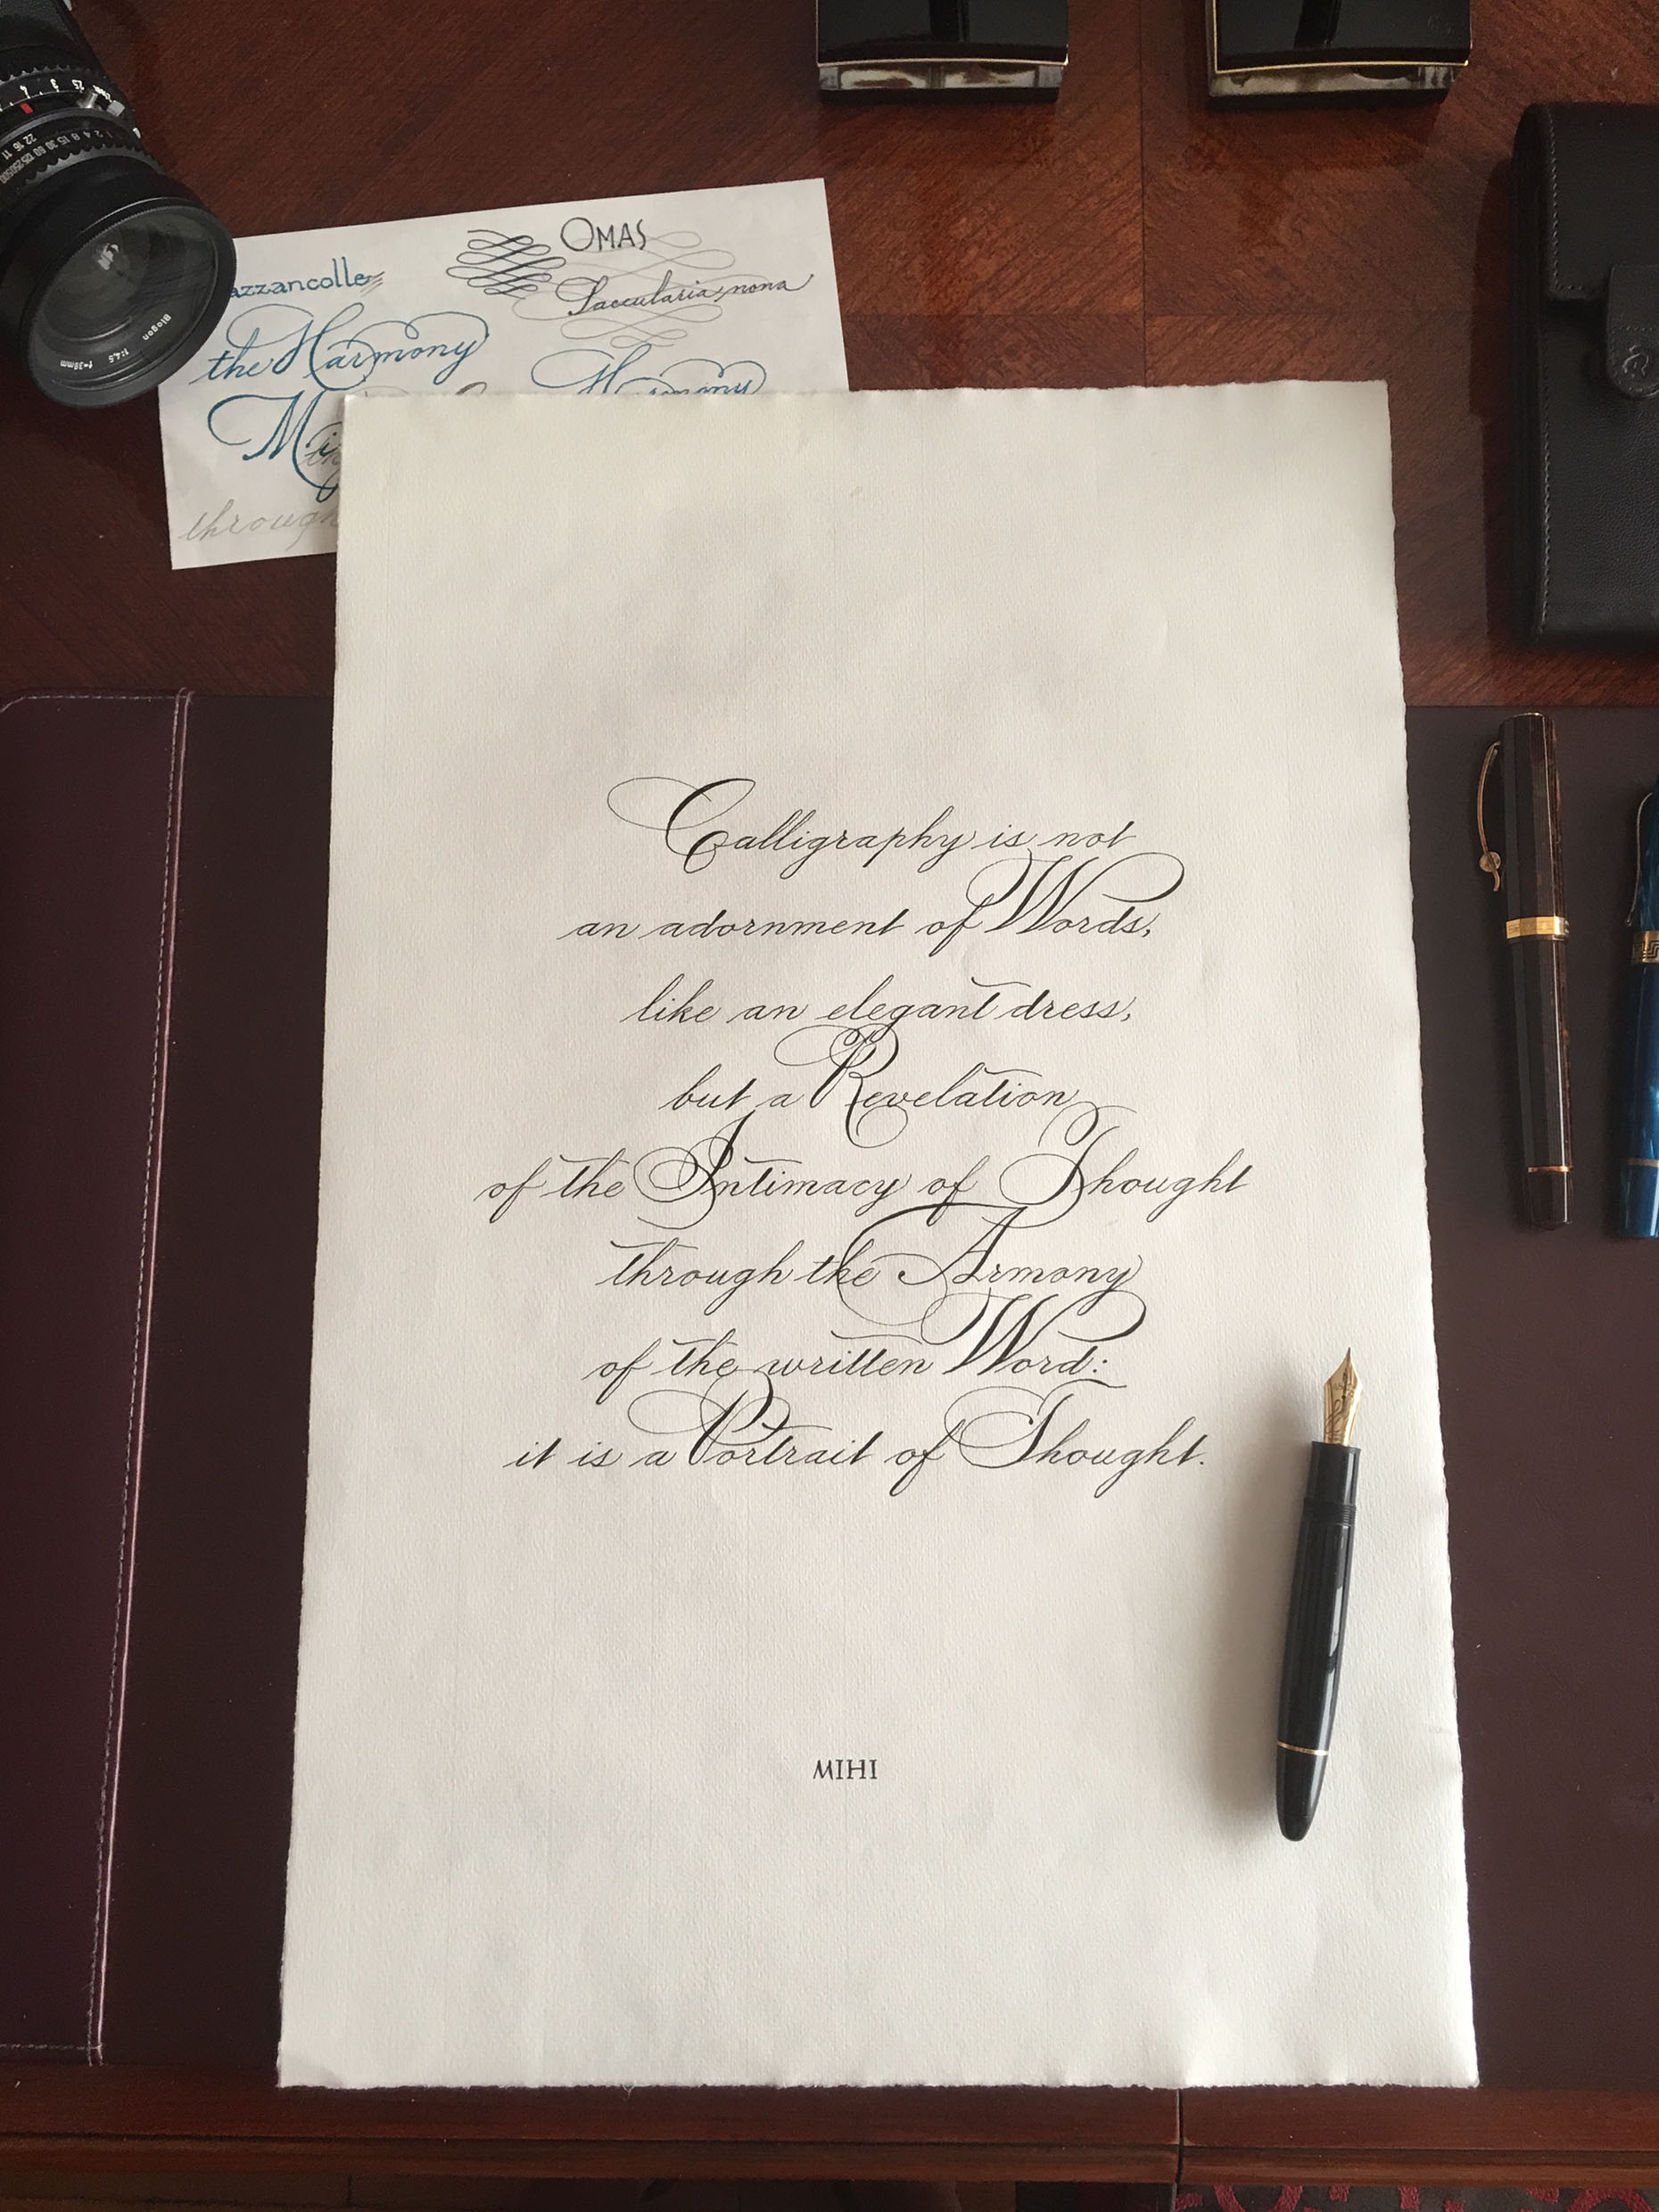 OMAS
azzancolle
Saccularia nona
the Harmony
Harmony
through
Biogon 1:4,5 f=38mm
Calligraphy is not
an adornment of Words,
like an elegant dress,
but a Revelation
of the Intimacy of Thought
through the Armony
of the written Word:
it is a Portrait of Thought.
MIHI